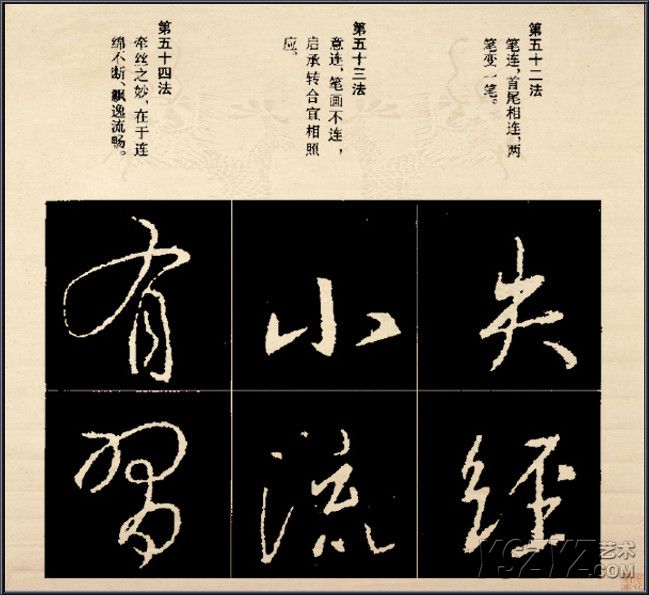 第五十二法
笔连,首尾相连,两
笔变一笔。
第五十三法
意连,笔画不连,
启承转合宜相照
应。
第五十四法
牵丝之妙,在于连
绵不断、飘逸流畅。
失
经
小
流
有
习
YSZYZ艺术